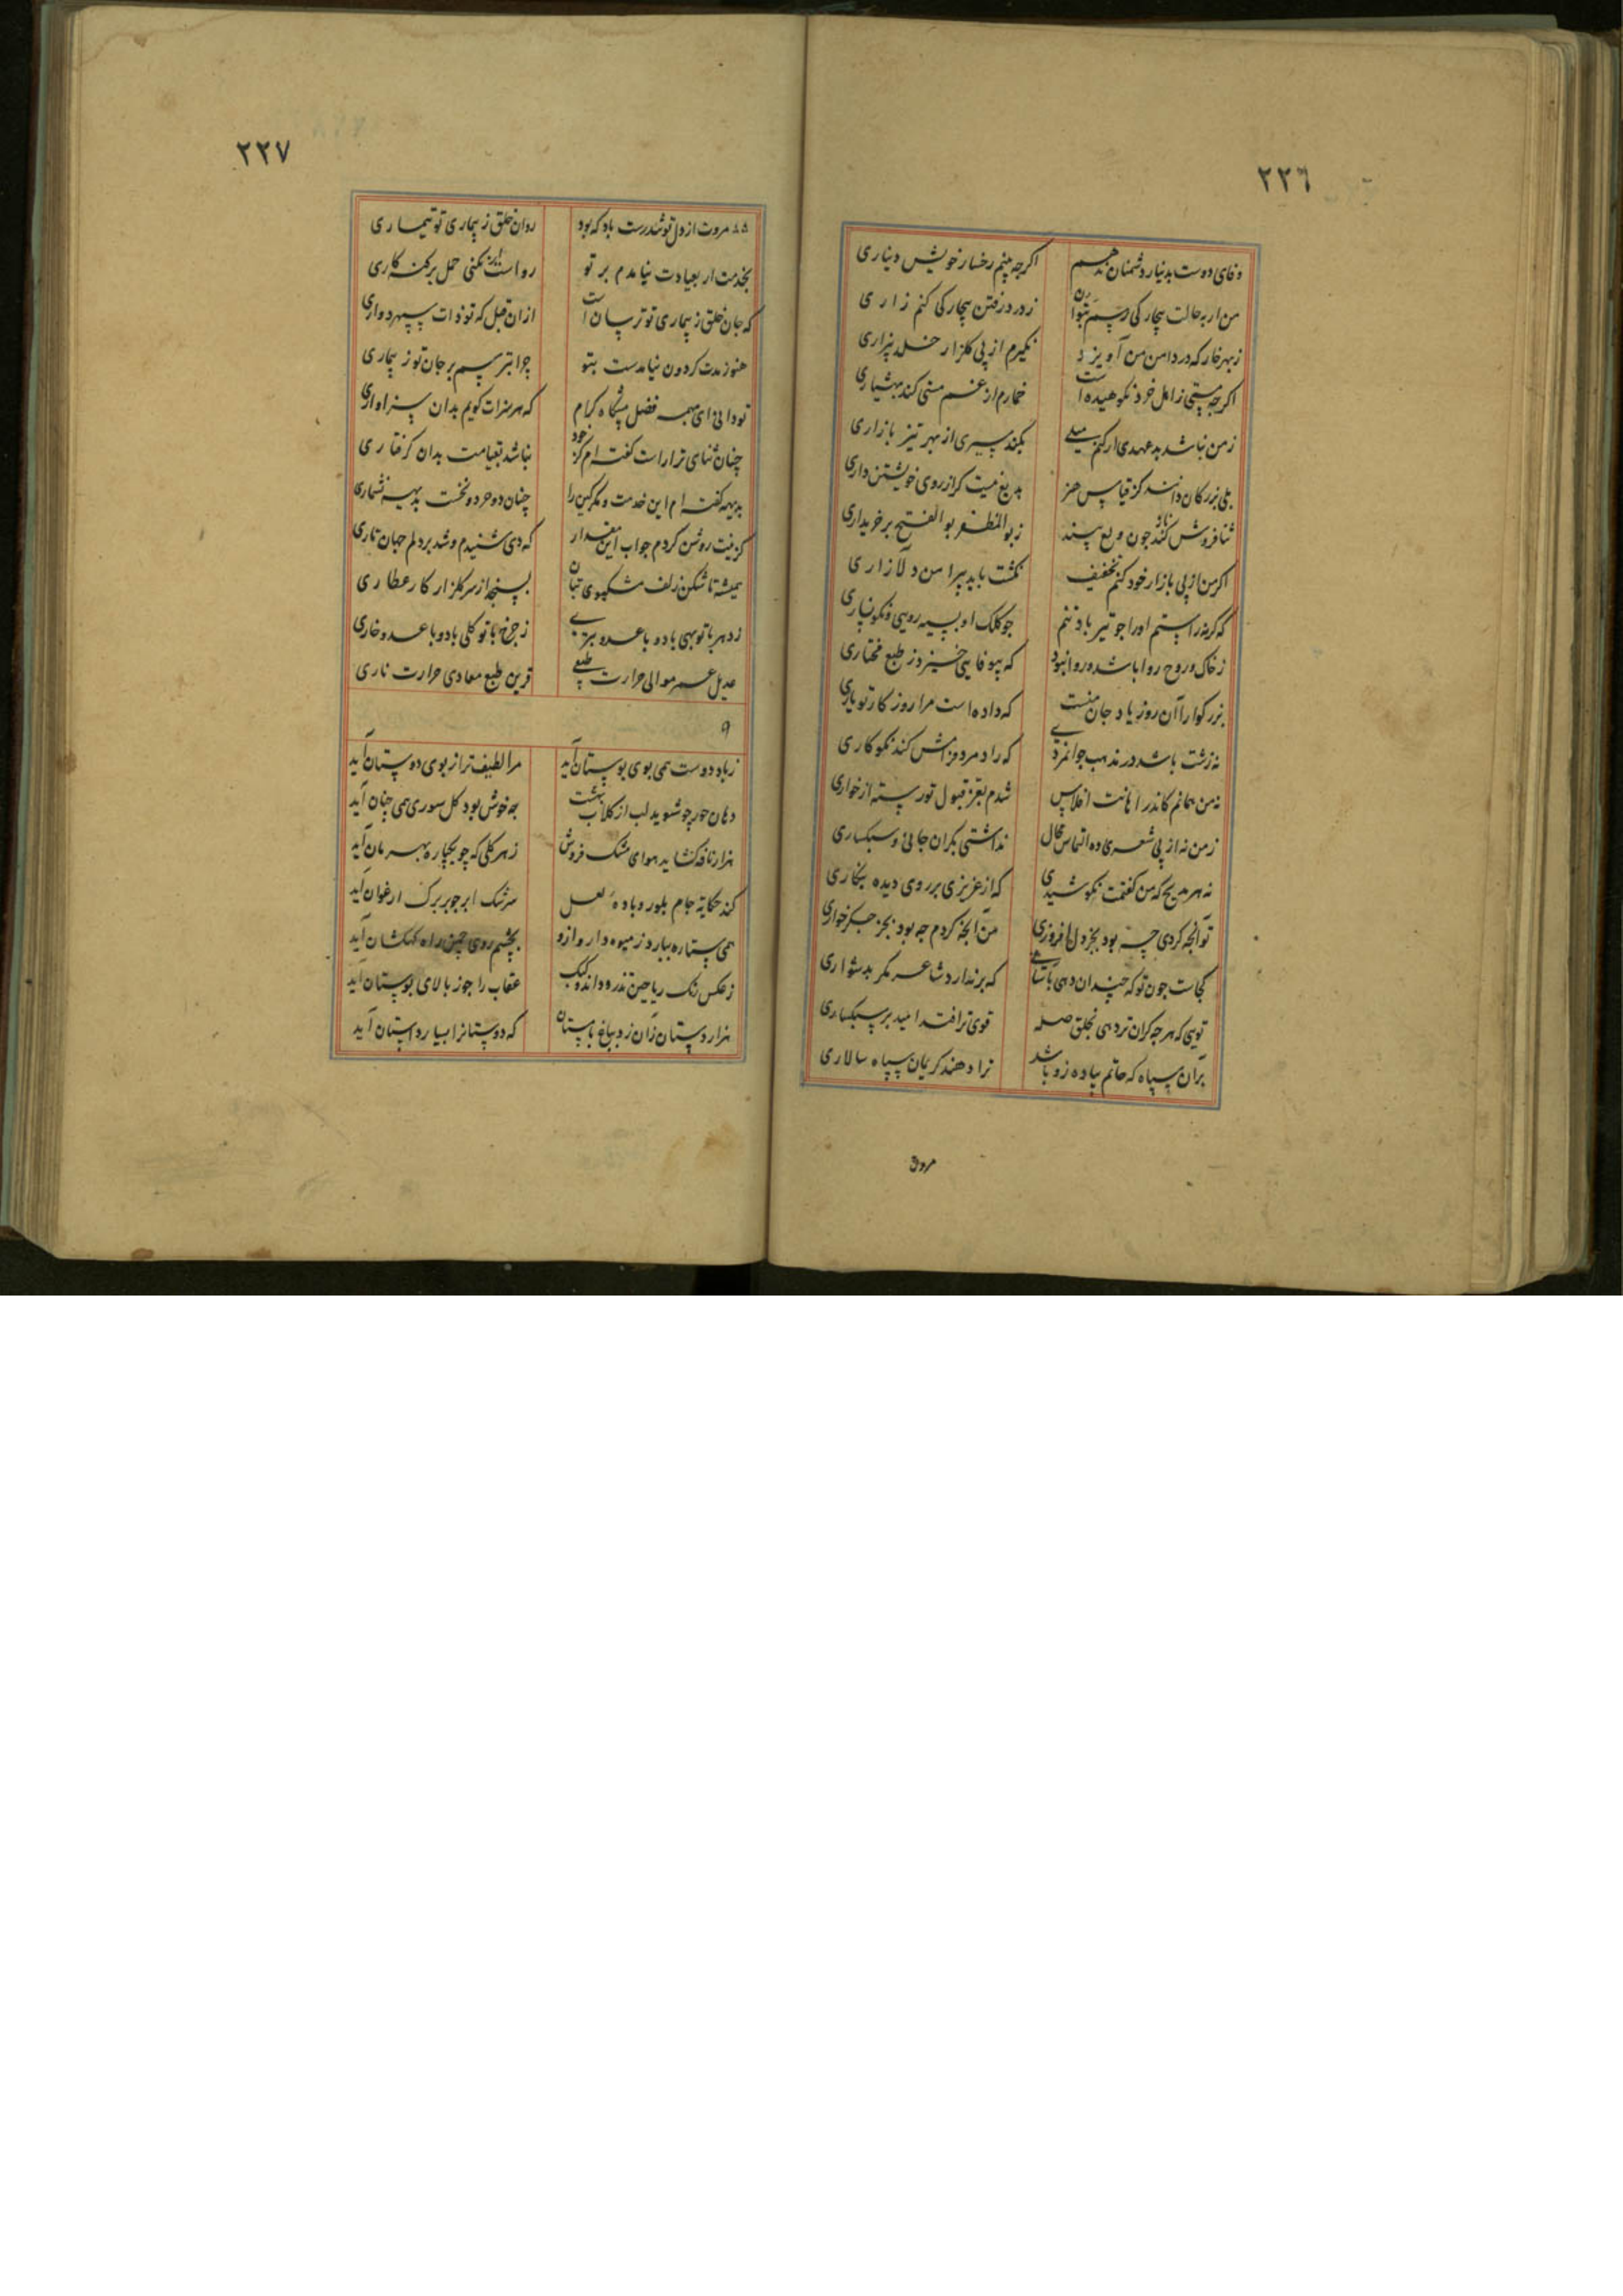 ٢٢٦
وفای دوست بدنیار دشمنان ندهم اکرچه بینم رخسار خویش دیناری
من ار به حالت بیچارکی رسم نتوان زدرد رفتن بیچارکی کنم زاری
زبهر خار که در دامن من آویزد نکیرم از پی کلزار خلد بیزاری
اکرچه مستی زاهل خرد نکوهیده است خمارم از غم مستی کند بهشیاری
زمن نباشد بدعهدی ار کنم میلی بکند پیری از بهر تیز بازاری
بلی بزرکان دانند کز قیاس هنر بدیع نیست کر از روی خویشتن داری
ثنا فروش کند ناز چون وی پسند زبوالمظفر بوالفتح بر خریداری
اکر من از پی بازار خود کنم تخفیف نکشت باید پیرامن دلازاری
که کرنه راستم او را چو تیر باد تنم چو کلک او بسیه رویی و نکونساری
زخاک و روح روا باشد و روا نبود که بیوفایی خیزد ز طبع مختاری
بزرکوارا آن روز یاد جان منست که داده است مرا روز کار تو یاری
نه زشت باشد در مذهب جوانمردی که راد مرد فرامش کند نکوکاری
نه من همانم کاندر اهانت افلاس شدم بعز قبول تو رسته از خواری
زمن نه از پی شعری و ده التماس محال نداشتی بکران جانی و سبکساری
نه هر مدیح که من کفتمت نکوشیدی که از عزیزی بر روی دیده بنکاری
تو آنچه کردی چه بود بجز دل افروزی من آنچه کردم چه بود بجز جکر خواری
کجاست چون تو که چندان دهی باسانی که برندارد شاعر مکر بدشواری
تویی که هرچه کران تر دهی بخلق صله قوی ترافتد امید بر سبکساری
بران سپاه که حاتم پیاده زو باشد ترا دهند کریمان سپاه سالاری
مروت
٢٢٧
٨٥ مروت از دل تو تندرست باد که بود روان خلق ز بیماری تو تیماری
بخدمت ار بعیادت نیامدم بر تو رواست ار نکنی حمل بر کنه کاری
که جان خلق ز بیماری تو ترسان است ازان قبل که تو ذات سپهر دواری
هنوز مدت کردون نیامدست بتو چرا بترسم بر جان تو ز بیماری
تو دانی ای همه فضل پیشکاه کرام که هر سزات کویم بدان سزاواری
چنان ثنای ترا راست کفته ام کز خود نباشد بقیامت بدان کرفتاری
بدیهه کفته ام این خدمت و مکر کین را چنان دو حرد و نخست بدیهه نشماری
کزنیت روشن کردم جواب این مقدار که دی شنیدم و شد بر دلم جهان تاری
همیشه تا شکن زلف مشکبوی بتان بسنجد از سر کلزار کار عطاری
زدهر با تو بهی باد و با عدو بتری زچرخ با تو کلی باد و با عدو خاری
عدیل عمر موالی حرارت طبعی قرین طبع معادی حرارت ناری
٩
زباد دوست همی بوی بوستان آید مرا لطیف تر از بوی دوستان آید
دهان حور چو شوید لب از کلاب بهشت چه خوش بود کل سوری همی چنان آید
هزار نافه کشاید هوای مشک فروش زهر کلی که چو بیچاره بهرمان آید
کند حکایة جام بلور و باده لعل سرشک ابر چو بر برک ارغوان آید
همی ستاره ببارد زمیوه دار و ازو بچشم روی چمن راه کهکشان آید
زعکس رنک ریاحین تذرو داند و کبک عقاب را جوز بالای بوستان آید
هزار دستان زان زد بباغ با دستان که دوستانرا بسیار دستان آید